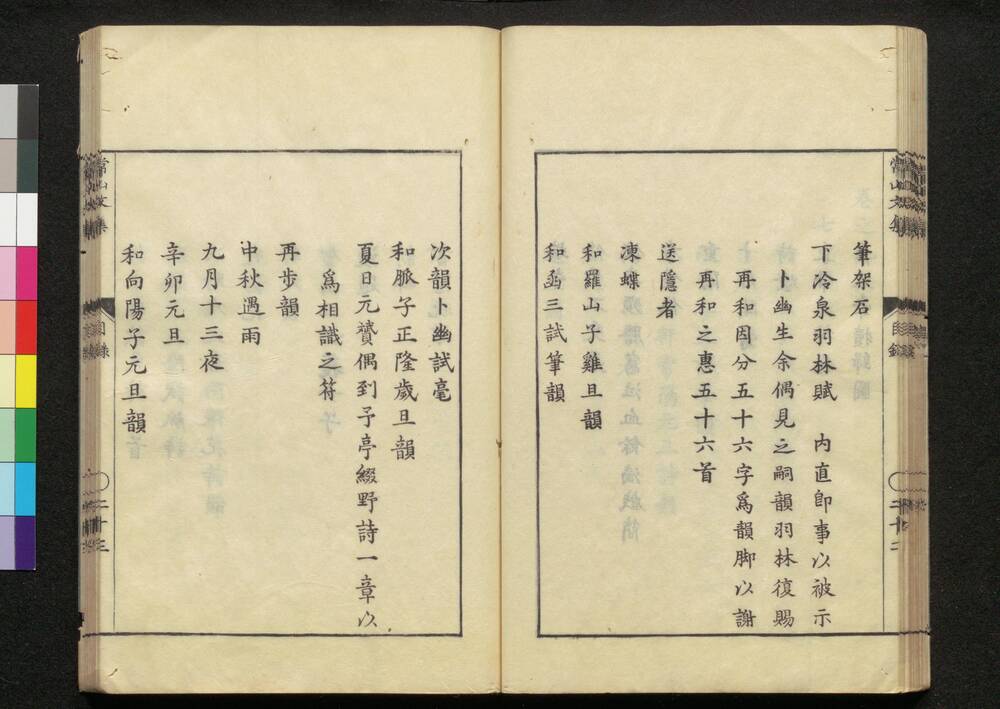 筆架石
下冷泉羽林賦　内直即事以被示
卜幽生余偶見之嗣韻羽林復賜
再和因分五十六字爲韻脚以謝
再和之惠五十六首
送隱者
凍蝶
和羅山子雞旦韻
和函三試筆韻
次韻卜幽試毫
和脈子正隆歲旦韻
夏日元贇偶到予亭綴野詩一章以
爲相識之符
再步韻
中秋遇雨
九月十三夜
辛卯元旦
和向陽子元旦韻
常山文集
目錄
二十三